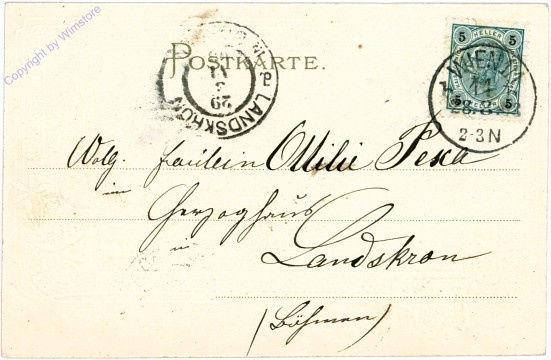 Copyright by Wimstore
POSTKARTE.
5 HELLER 5
5 5
WIEN
2-3N
LANDSKRON
29
Wolg. Fräulein Ottilie Pexa
im
Herzoghaus
in
Landskron
(Böhmen)